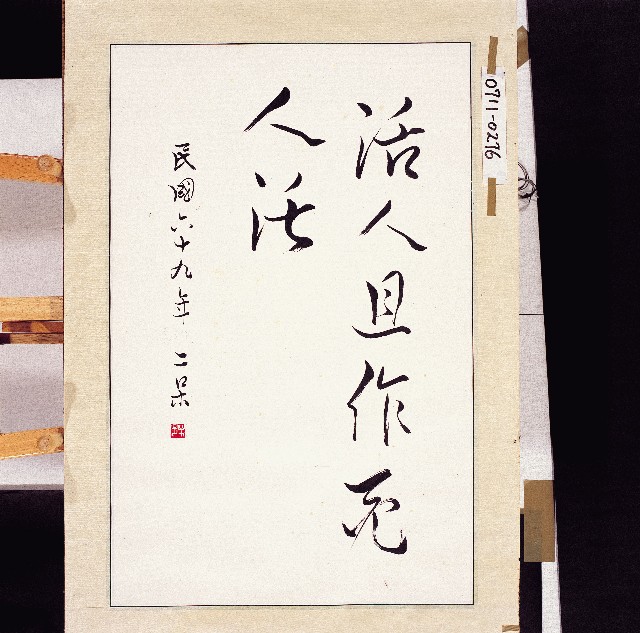 活人且作死
人活
民國六十九年 二呆
0711-0276